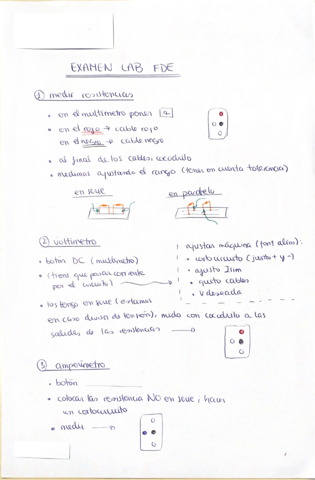 EXAMEN LAB FDE
① medir resistencias
• en el multímetro pones Ω
• en el rojo → cable rojo
en el negro → cable negro
• al final de los cables, cocodrilo
• medimos ajustando el rango (tener en cuenta tolerancia)
en serie en paralelo
② voltímetro
• botón DC (multímetro)
• (tiene que pasar corriente
por el circuito)
• los tengo en serie (estamos
en caso divisor de tensión), mido con cocodrilo a las
salidas de las resistencias →
ajustar máquina (font alim):
• cortocircuito (junto + y -)
• ajusto Ilim
• quito cables
• V deseada
③ amperímetro
• botón
• colocar las resistencia NO en serie, hacer
un cortocircuito
• medir →